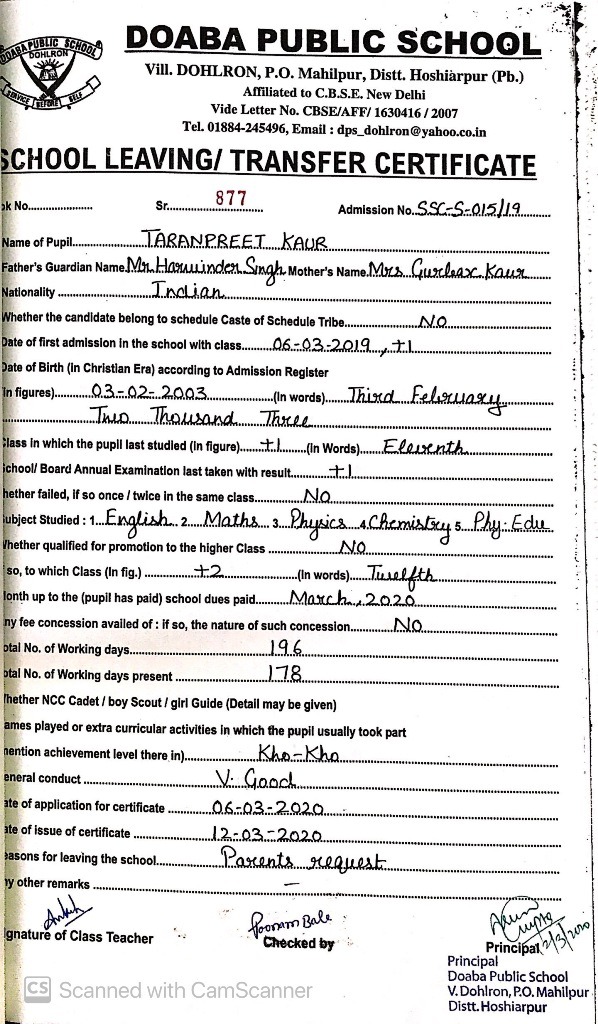 DOABA PUBLIC SCHOOL
DOHLRON
SERVICE BEFORE SELF
DOABA PUBLIC SCHOOL
Vill. DOHLRON, P.O. Mahilpur, Distt. Hoshiarpur (Pb.)
Affiliated to C.B.S.E. New Delhi
Vide Letter No. CBSE/AFF/ 1630416 / 2007
Tel. 01884-245496, Email : dps_dohlron@yahoo.co.in
SCHOOL LEAVING/ TRANSFER CERTIFICATE
ok No. Sr. 877 Admission No. SSC-S-015/19
Name of Pupil TARANPREET KAUR
Father's Guardian Name Mr. Harwinder Singh Mother's Name Mrs Gurbax Kaur
Nationality Indian
Whether the candidate belong to schedule Caste of Schedule Tribe NO
Date of first admission in the school with class 06-03-2019, +1
Date of Birth (in Christian Era) according to Admission Register
in figures) 03-02-2003 (In words) Third February
Two Thousand Three
Class in which the pupil last studied (In figure) +1 (In Words) Eleventh
chool/ Board Annual Examination last taken with result +1
hether failed, if so once / twice in the same class No
ubject Studied : 1 English 2 Maths 3 Physics 4 Chemistry 5 Phy. Edu
Whether qualified for promotion to the higher Class NO
so, to which Class (In fig.) +2 (In words) Twelfth
onth up to the (pupil has paid) school dues paid March, 2020
ny fee concession availed of : if so, the nature of such concession No
otal No. of Working days 196
otal No. of Working days present 178
hether NCC Cadet / boy Scout / girl Guide (Detail may be given)
ames played or extra curricular activities in which the pupil usually took part
mention achievement level there in) Kho-Kho
eneral conduct V. Good
ate of application for certificate 06-03-2020
ate of issue of certificate 12-03-2020
easons for leaving the school Parents request
ny other remarks —
Ankit Poonam Bala Arun Gupta
ignature of Class Teacher Checked by Principal 12/3/2020
Principal
Doaba Public School
V. Dohlron, P.O. Mahilpur
Distt. Hoshiarpur
CS Scanned with CamScanner